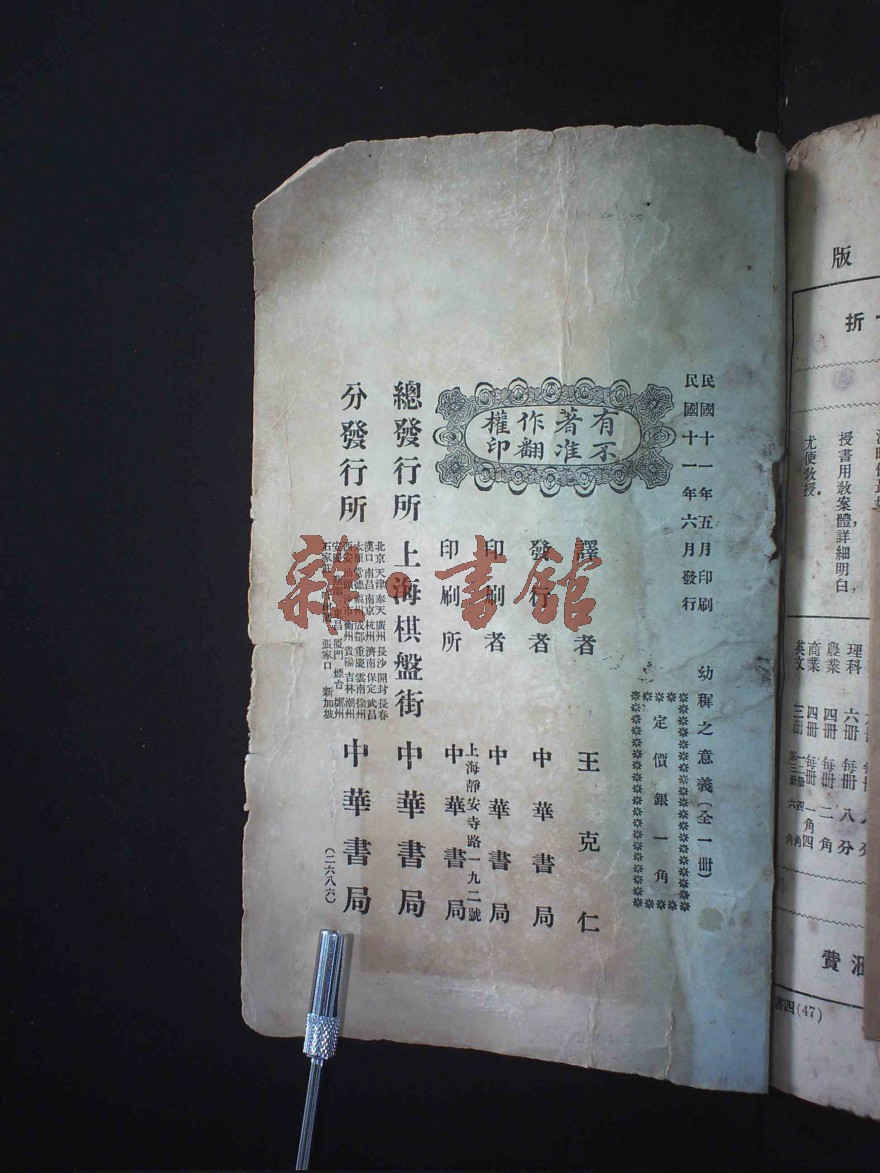 版
折
授書用教案體，詳細明白，
尤便教授。
理科 六冊 每冊 八分
農業 四冊 每冊 二角
商業 四冊 每冊
英文 三冊
費
(47)
民國十一年五月印刷
民國十一年六月發行
幼稺之意義（全一冊）
定價銀一角
有著作權
不准翻印
譯者 王克仁
發行者 中華書局
印刷者 中華書局
印刷所 上海靜安寺路一九二號
中華書局
總發行所 上海棋盤街 中華書局
分發行所
北京 天津 奉天 廣州 長沙 開封 長春
漢口 南昌 南京 杭州 濟南 保定 武昌
成都 重慶 雲南 徐州
衢州 貴陽 吉林 潮州
東昌 厦門 煙台 鄭州
石家莊 張家口 新加坡
中華書局
（二六八六）
雜·書館